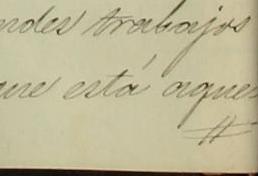 ndes trabajos
que está aques